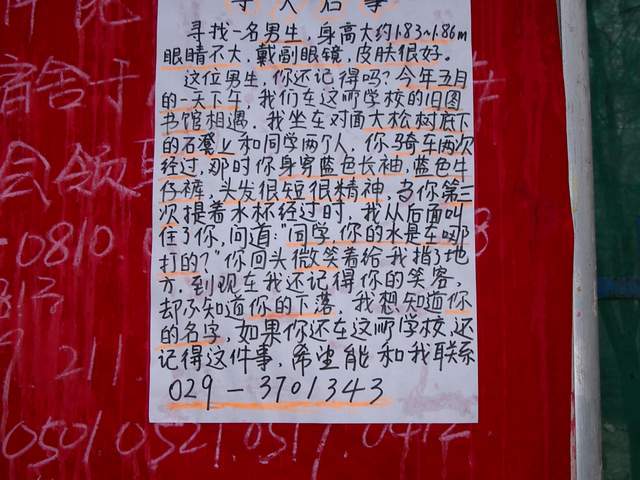 寻人启事
寻找一名男生，身高大约1.83~1.86m
眼睛不大，戴副眼镜，皮肤很好。
这位男生，你还记得吗？今年五月
的一天下午，我们在这所学校的旧图
书馆相遇，我坐在对面大松树底下
的石凳上和同学两个人，你骑车两次
经过，那时你身穿蓝色长袖，蓝色牛
仔裤，头发很短很精神，当你第三
次提着水杯经过时，我从后面叫
住了你，问道："同学，你的水是在哪
打的？"你回头微笑着给我指了地
方，到现在我还记得你的笑容，
却不知道你的下落，我想知道你
的名字，如果你还在这所学校，还
记得这件事，希望能和我联系
029－3701343
宿舍于
会领
-0810
211
0501 0521 0517 0412